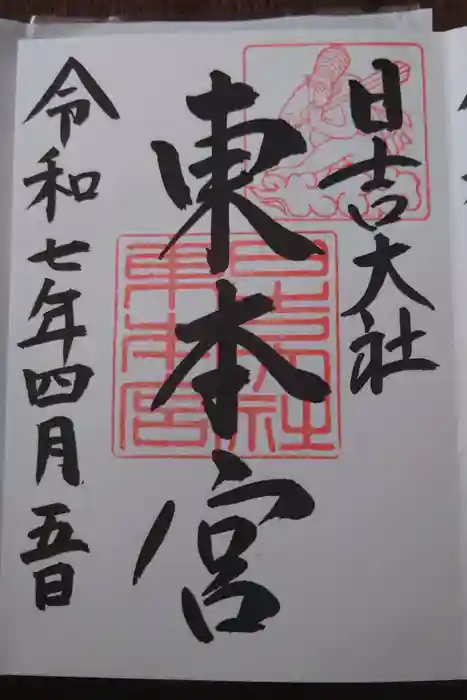 日吉大社
東本宮
日吉大社
東本宮
令和七年四月五日